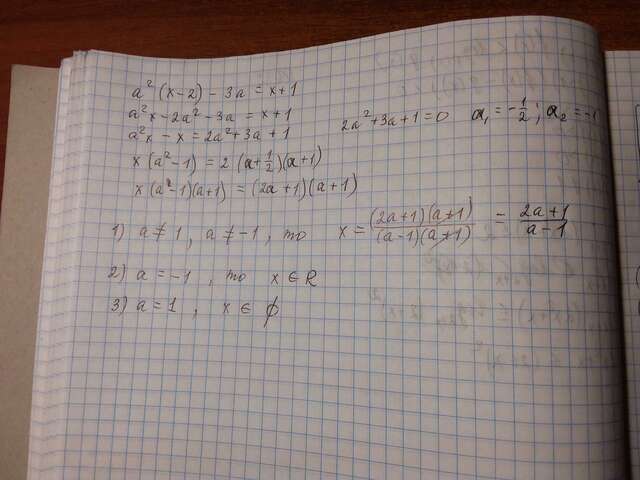 a²(x-2) - 3a = x+1
a²x - 2a² - 3a = x+1
a²x - x = 2a² + 3a + 1
2a² + 3a + 1 = 0 a₁ = -1/2 ; a₂ = -1
x(a²-1) = 2(a+1/2)(a+1)
x(a²-1)(a+1) = (2a+1)(a+1)
1) a ≠ 1, a ≠ -1, то x = (2a+1)(a+1)/(a-1)(a+1) = 2a+1/a-1
2) a = -1, то x ∈ R
3) a = 1, x ∈ ∅